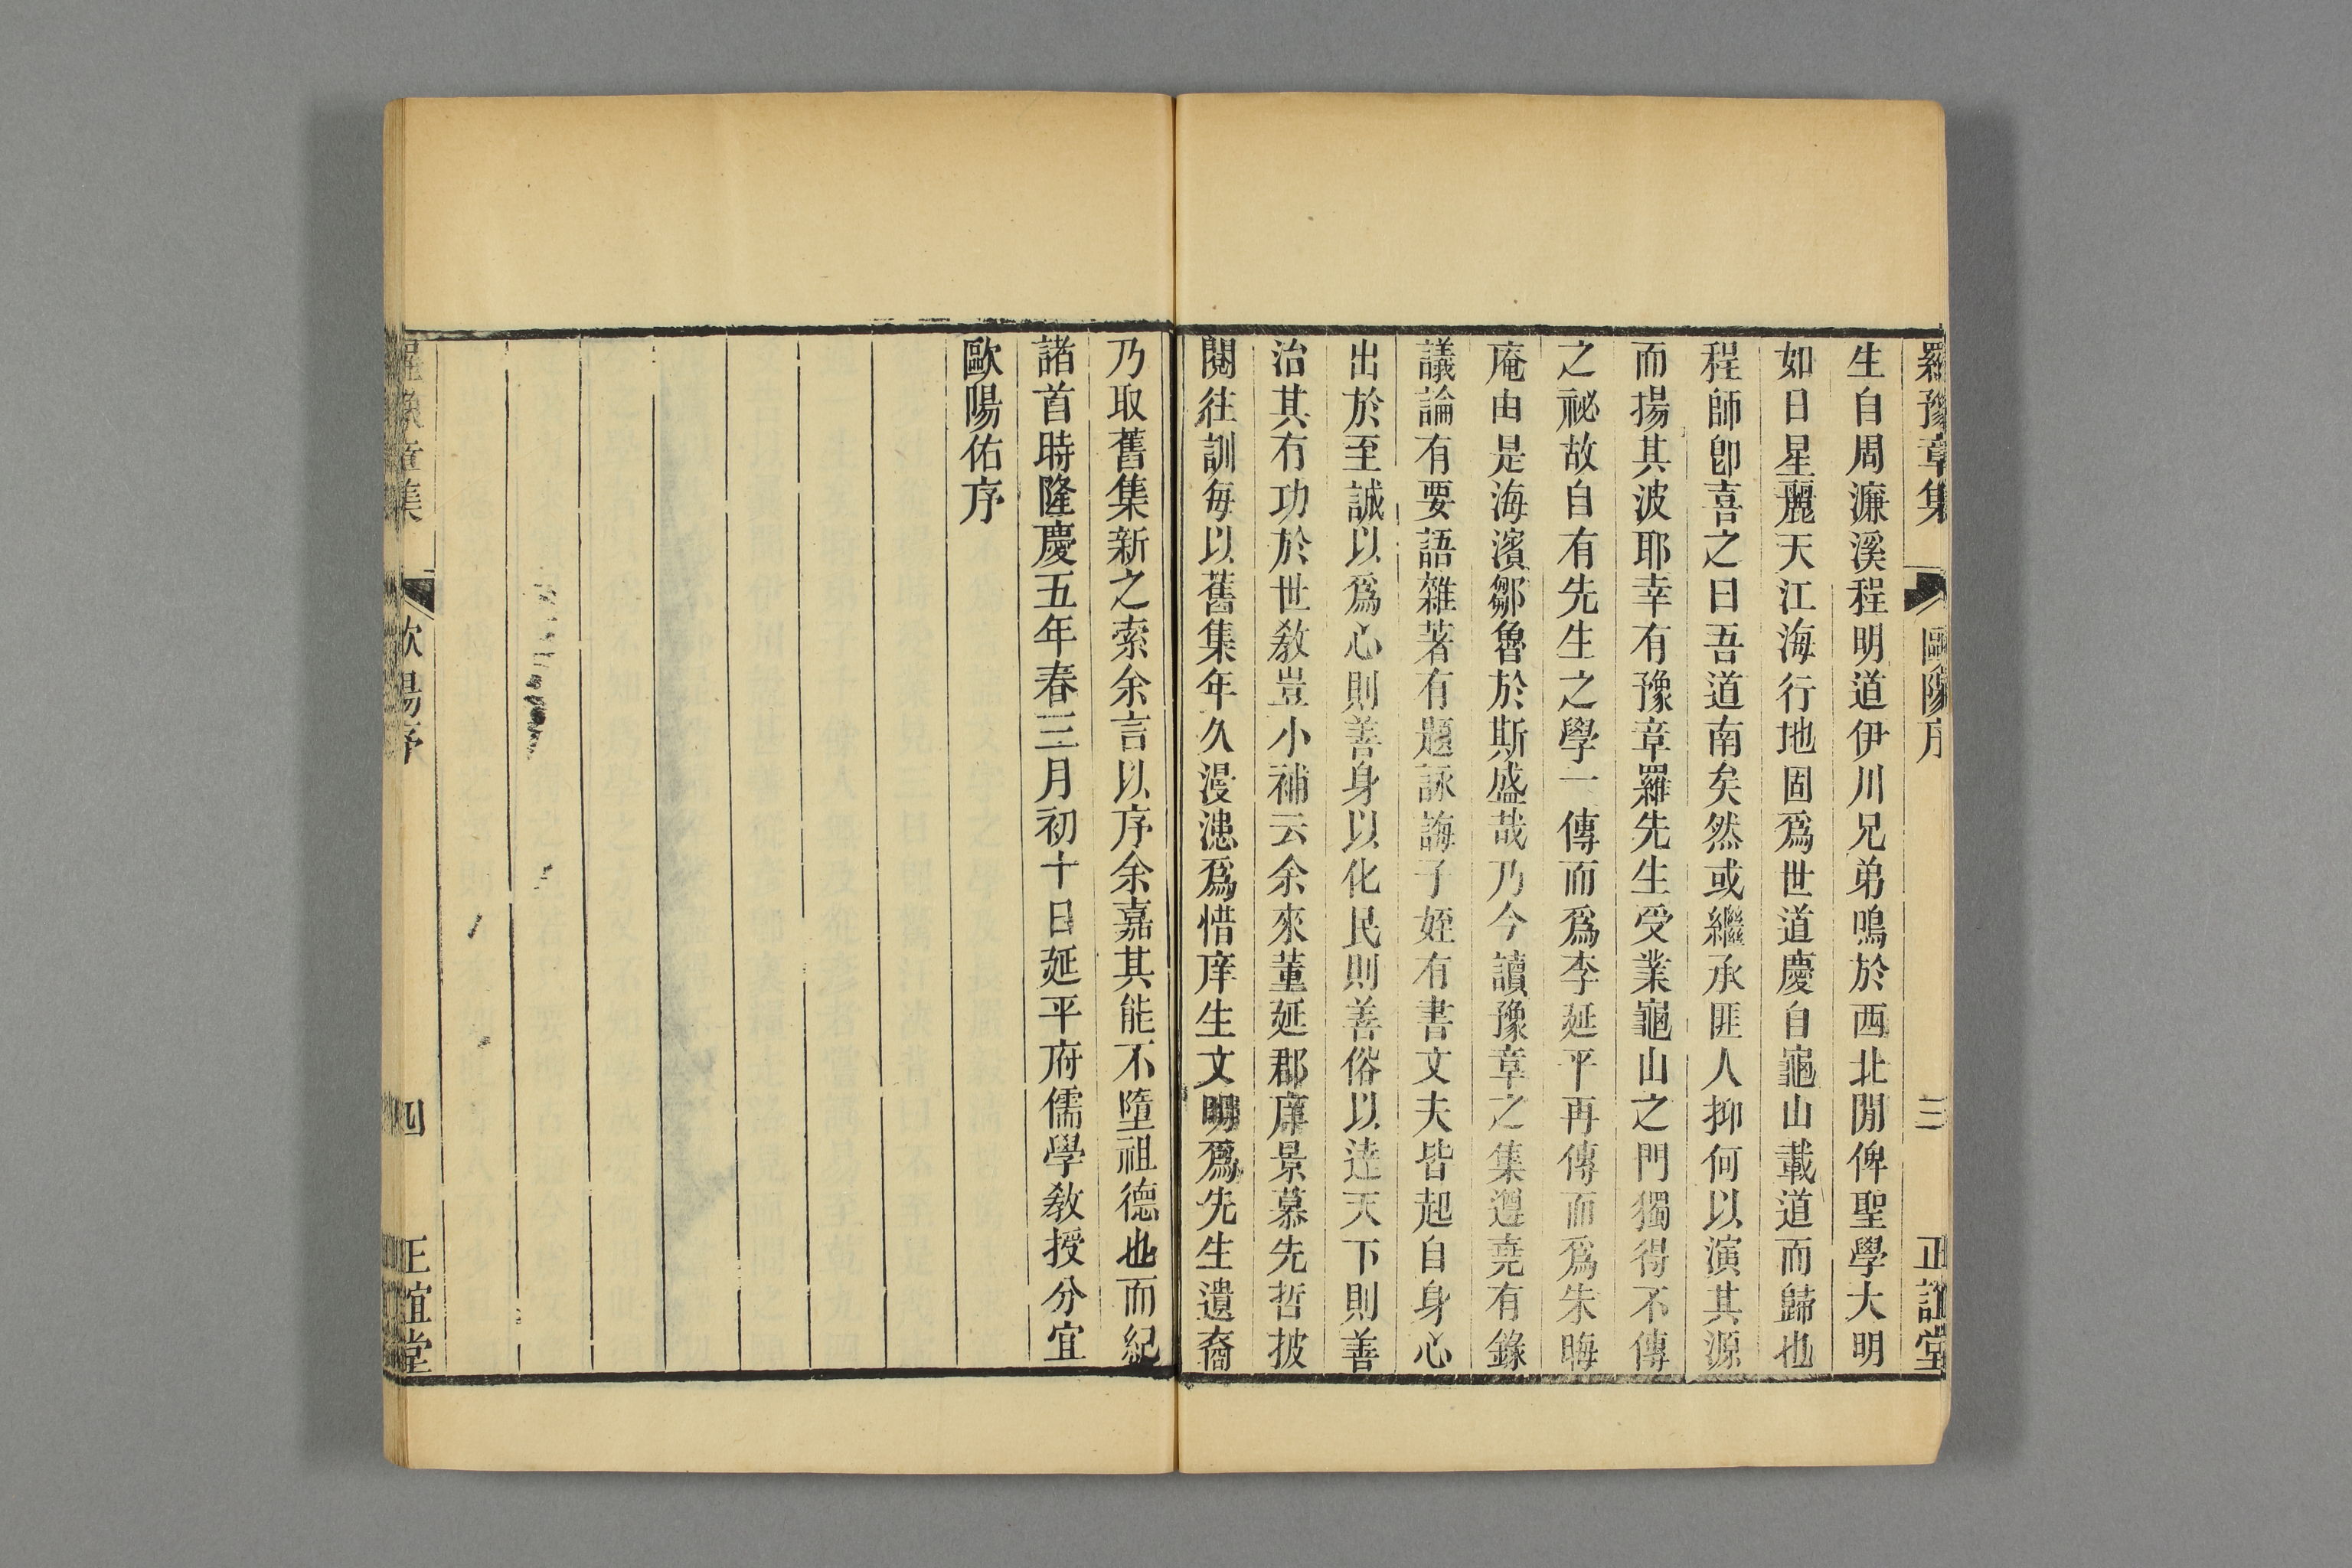 羅豫章集 歐陽序 三 正誼堂
生自周濂溪程明道伊川兄弟鳴於西北閒俾聖學大明
如日星麗天江海行地固爲世道慶自龜山載道而歸也
程師卽喜之曰吾道南矣然或繼承匪人抑何以演其源
而揚其波耶幸有豫章羅先生受業龜山之門獨得不傳
之祕故自有先生之學一傳而爲李延平再傳而爲朱晦
庵由是海濱鄒魯於斯盛哉乃今讀豫章之集遵堯有錄
議論有要語雜著有題詠誨子姪有書文夫皆起自身心
出於至誠以爲心則善身以化民則善俗以達天下則善
治其有功於世敎豈小補云余來董延郡庠景慕先哲披
閱往訓每以舊集年久漫漶爲惜庠生文明爲先生遺裔
乃取舊集新之索余言以序余嘉其能不墮祖德也而紀
諸首時隆慶五年春三月初十日延平府儒學敎授分宜
歐陽佑序
羅豫章集 歐陽序 四 正誼堂